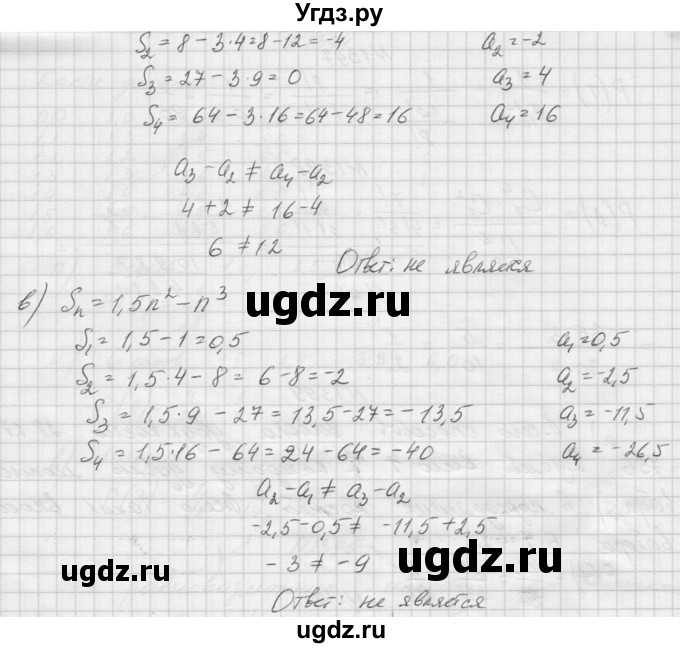 Угдз.ру
S₂ = 8 − 3·4 = 8 − 12 = −4 a₂ = −2
S₃ = 27 − 3·9 = 0 a₃ = 4
S₄ = 64 − 3·16 = 64 − 48 = 16 a₄ = 16
a₃ − a₂ ≠ a₄ − a₂
4 + 2 ≠ 16 − 4
6 ≠ 12
Ответ: не является
в) Sₙ = 1,5n² − n³
ugdz.ru
S₁ = 1,5 − 1 = 0,5 a₁ = 0,5
S₂ = 1,5·4 − 8 = 6 − 8 = −2 a₂ = −2,5
S₃ = 1,5·9 − 27 = 13,5 − 27 = −13,5 a₃ = −11,5
S₄ = 1,5·16 − 64 = 24 − 64 = −40 a₄ = −26,5
a₂ − a₁ ≠ a₃ − a₂
−2,5 − 0,5 ≠ −11,5 + 2,5
−3 ≠ −9
ugdz.ru
ugdz.ru
Ответ: не является
ugdz.ru